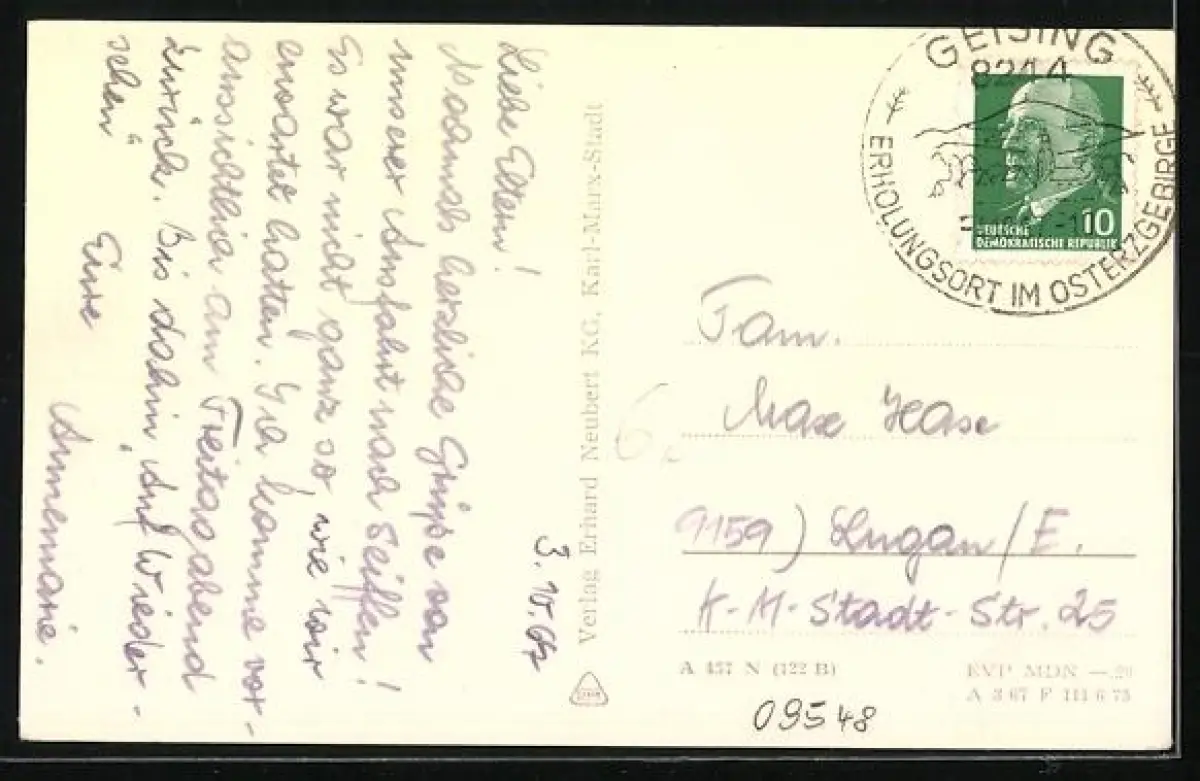 3.10.67
Liebe Eltern!
Nochmals herzliche Grüße von
unserer Ausfahrt nach Seiffen!
Es war nicht ganz so, wie wir
erwartet hatten. Ich komme vor-
aussichtlich am Freitag abend
zurück. Bis dahin „Auf Wieder-
sehen"
Eure
Annemarie.
Verlag Erhard Neubert KG, Karl-Marx-Stadt
GEISING
8244
ERHOLUNGSORT IM OSTERZGEBIRGE
10
DEUTSCHE
DEMOKRATISCHE REPUBLIK
Fam.
Max Hase
9159) Lugau/E.
K-M-Stadt-Str. 25
A 457 N (122 B)
EVP MDN —.20
A 3 67 F 111 6 75
09548